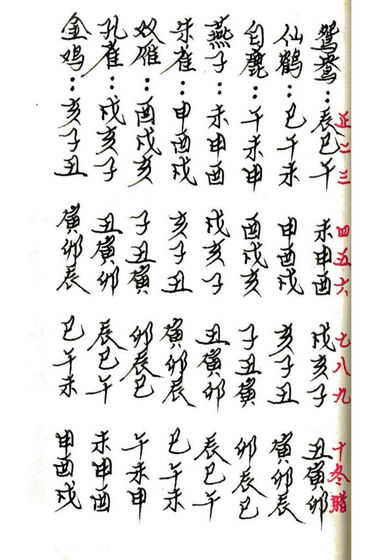 正二三 四五六 七八九 十冬腊
鸳鸯：辰巳午 未申酉 戌亥子 丑寅卯
仙鹤：巳午未 申酉戌 亥子丑 寅卯辰
白鹿：午未申 酉戌亥 子丑寅 卯辰巳
燕子：未申酉 戌亥子 丑寅卯 辰巳午
朱雀：申酉戌 亥子丑 寅卯辰 巳午未
奴雁：酉戌亥 子丑寅 卯辰巳 午未申
孔雀：戌亥子 丑寅卯 辰巳午 未申酉
金鸡：亥子丑 寅卯辰 巳午未 申酉戌